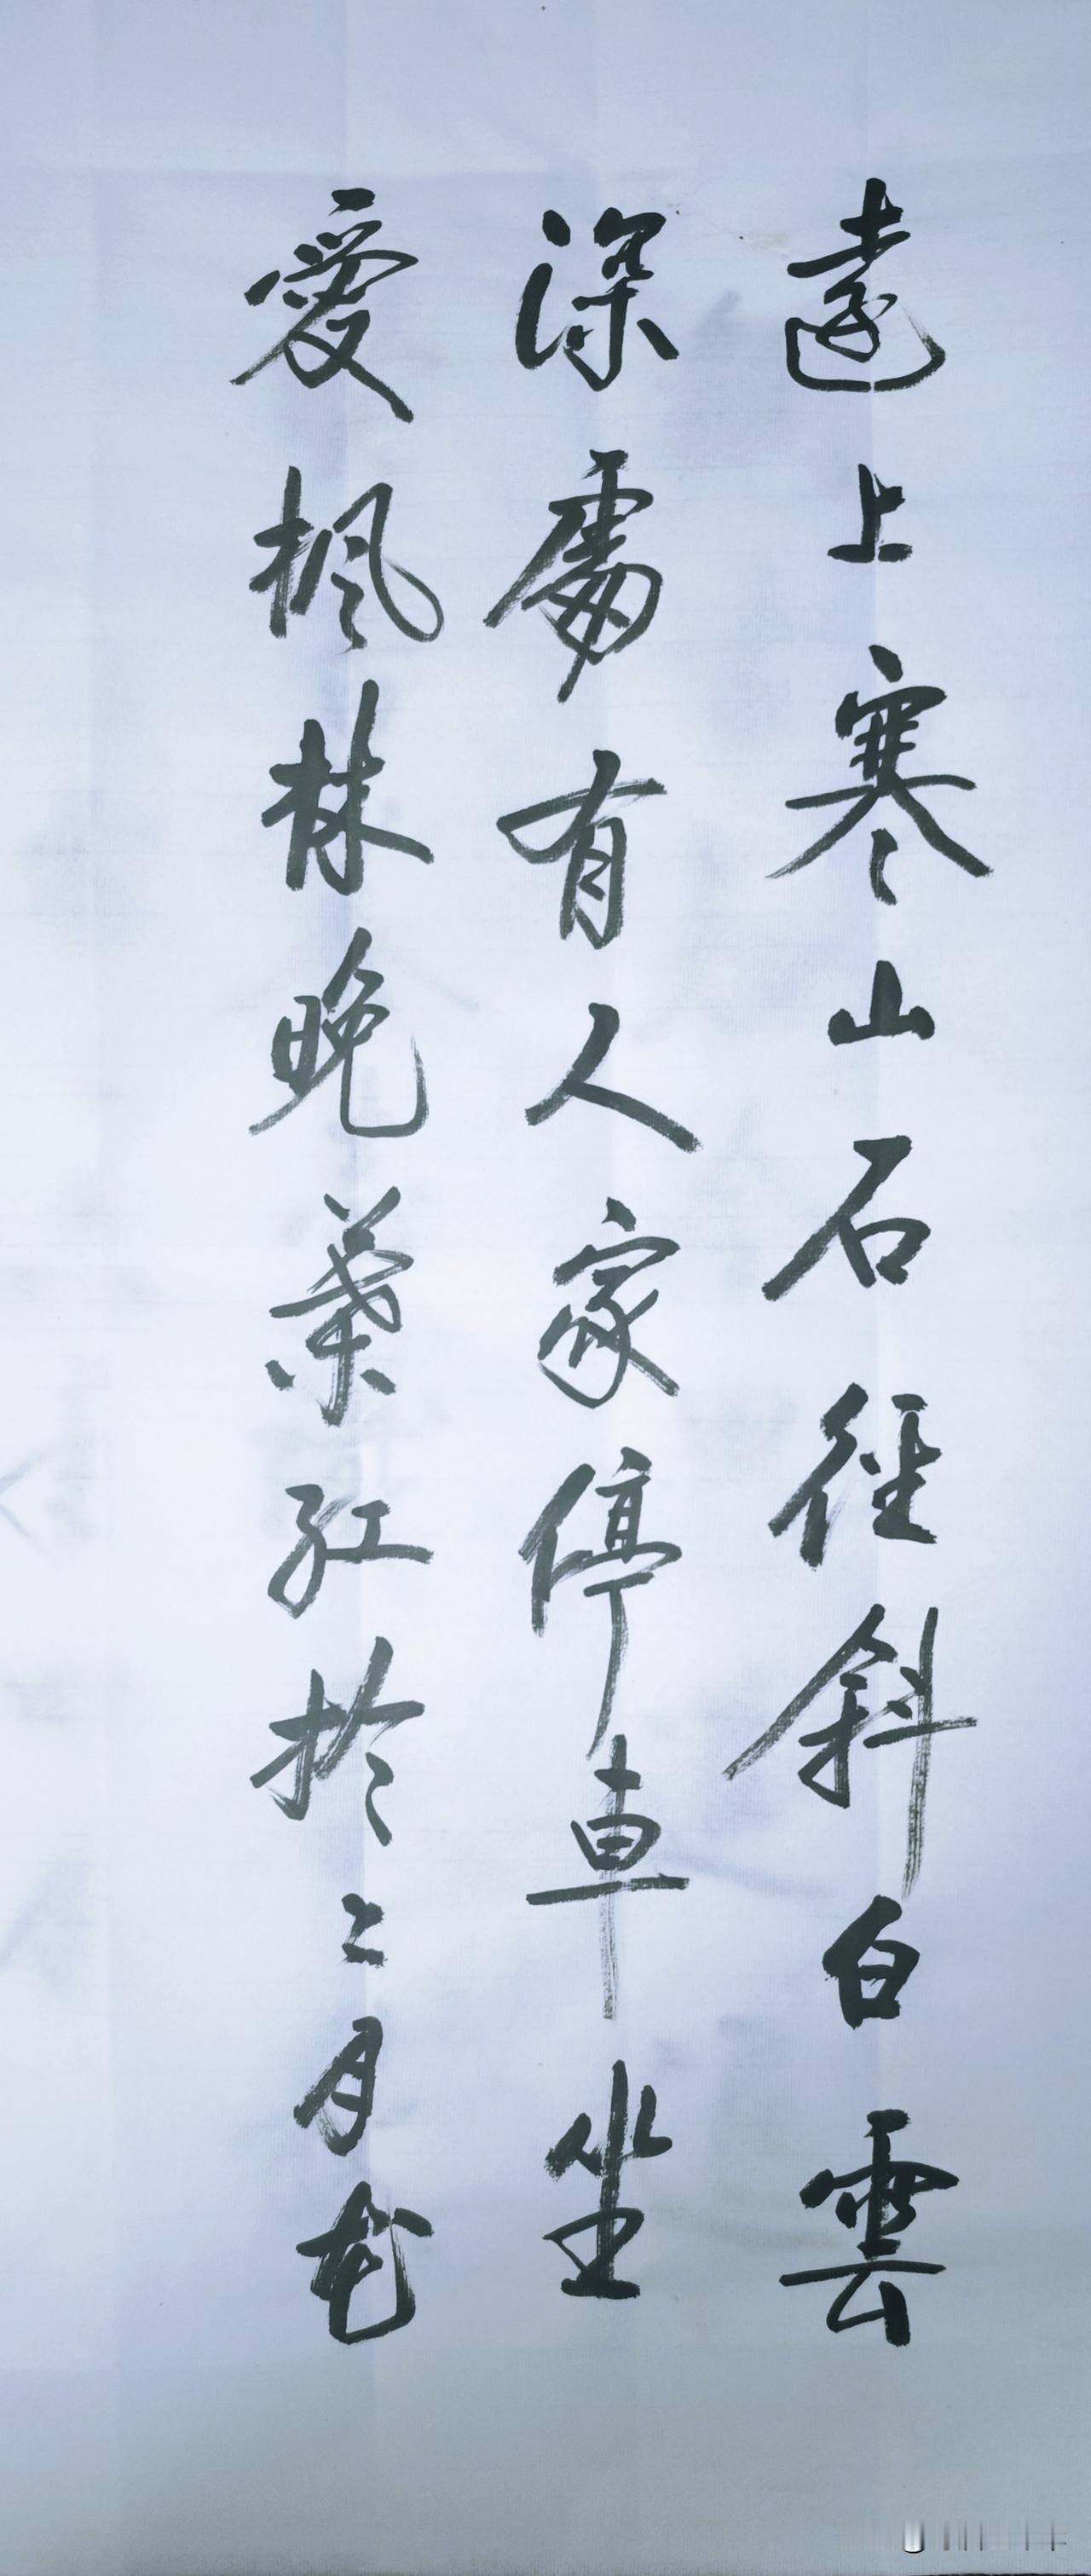 遠上寒山石径斜白雲
深處有人家停車坐
愛楓林晚葉紅於二月花